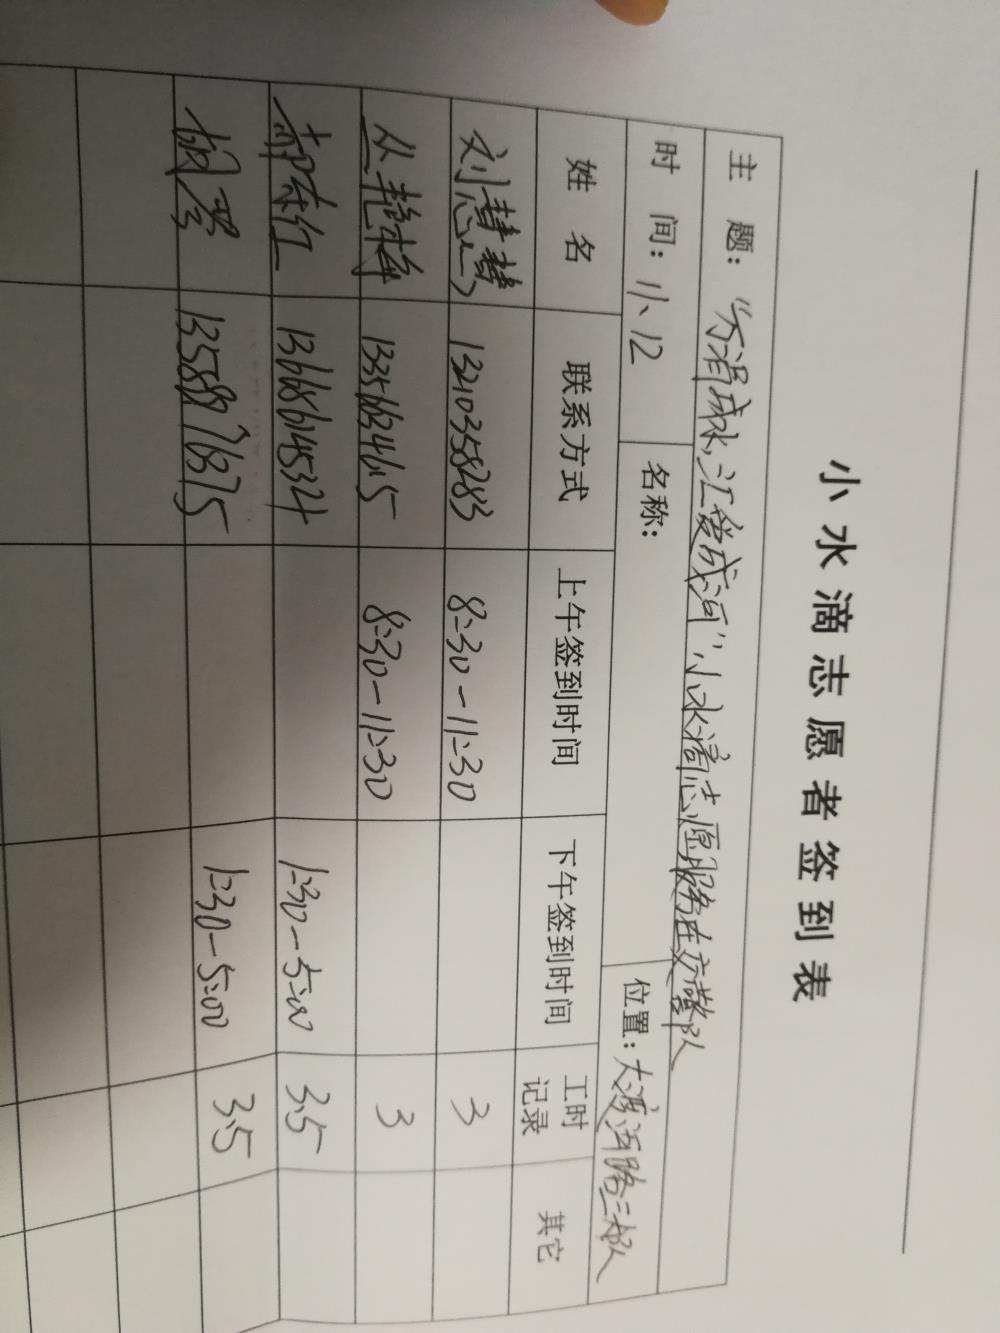 小水滴志愿者签到表
主 题："芳涓成水，汇爱成河"小水滴志愿服务在交警队
时 间：小12 名称： 位置：大渡河路三大队
姓 名 联系方式 上午签到时间 下午签到时间 工时记录 其它
刘慧慧 13210358283 8:30-11:30 3
丛艳梅 13356634615 8:30-11:30 3
郝红 13668614532 1:30-5:00 3.5
胡雪 13588976375 1:30-5:00 3.5